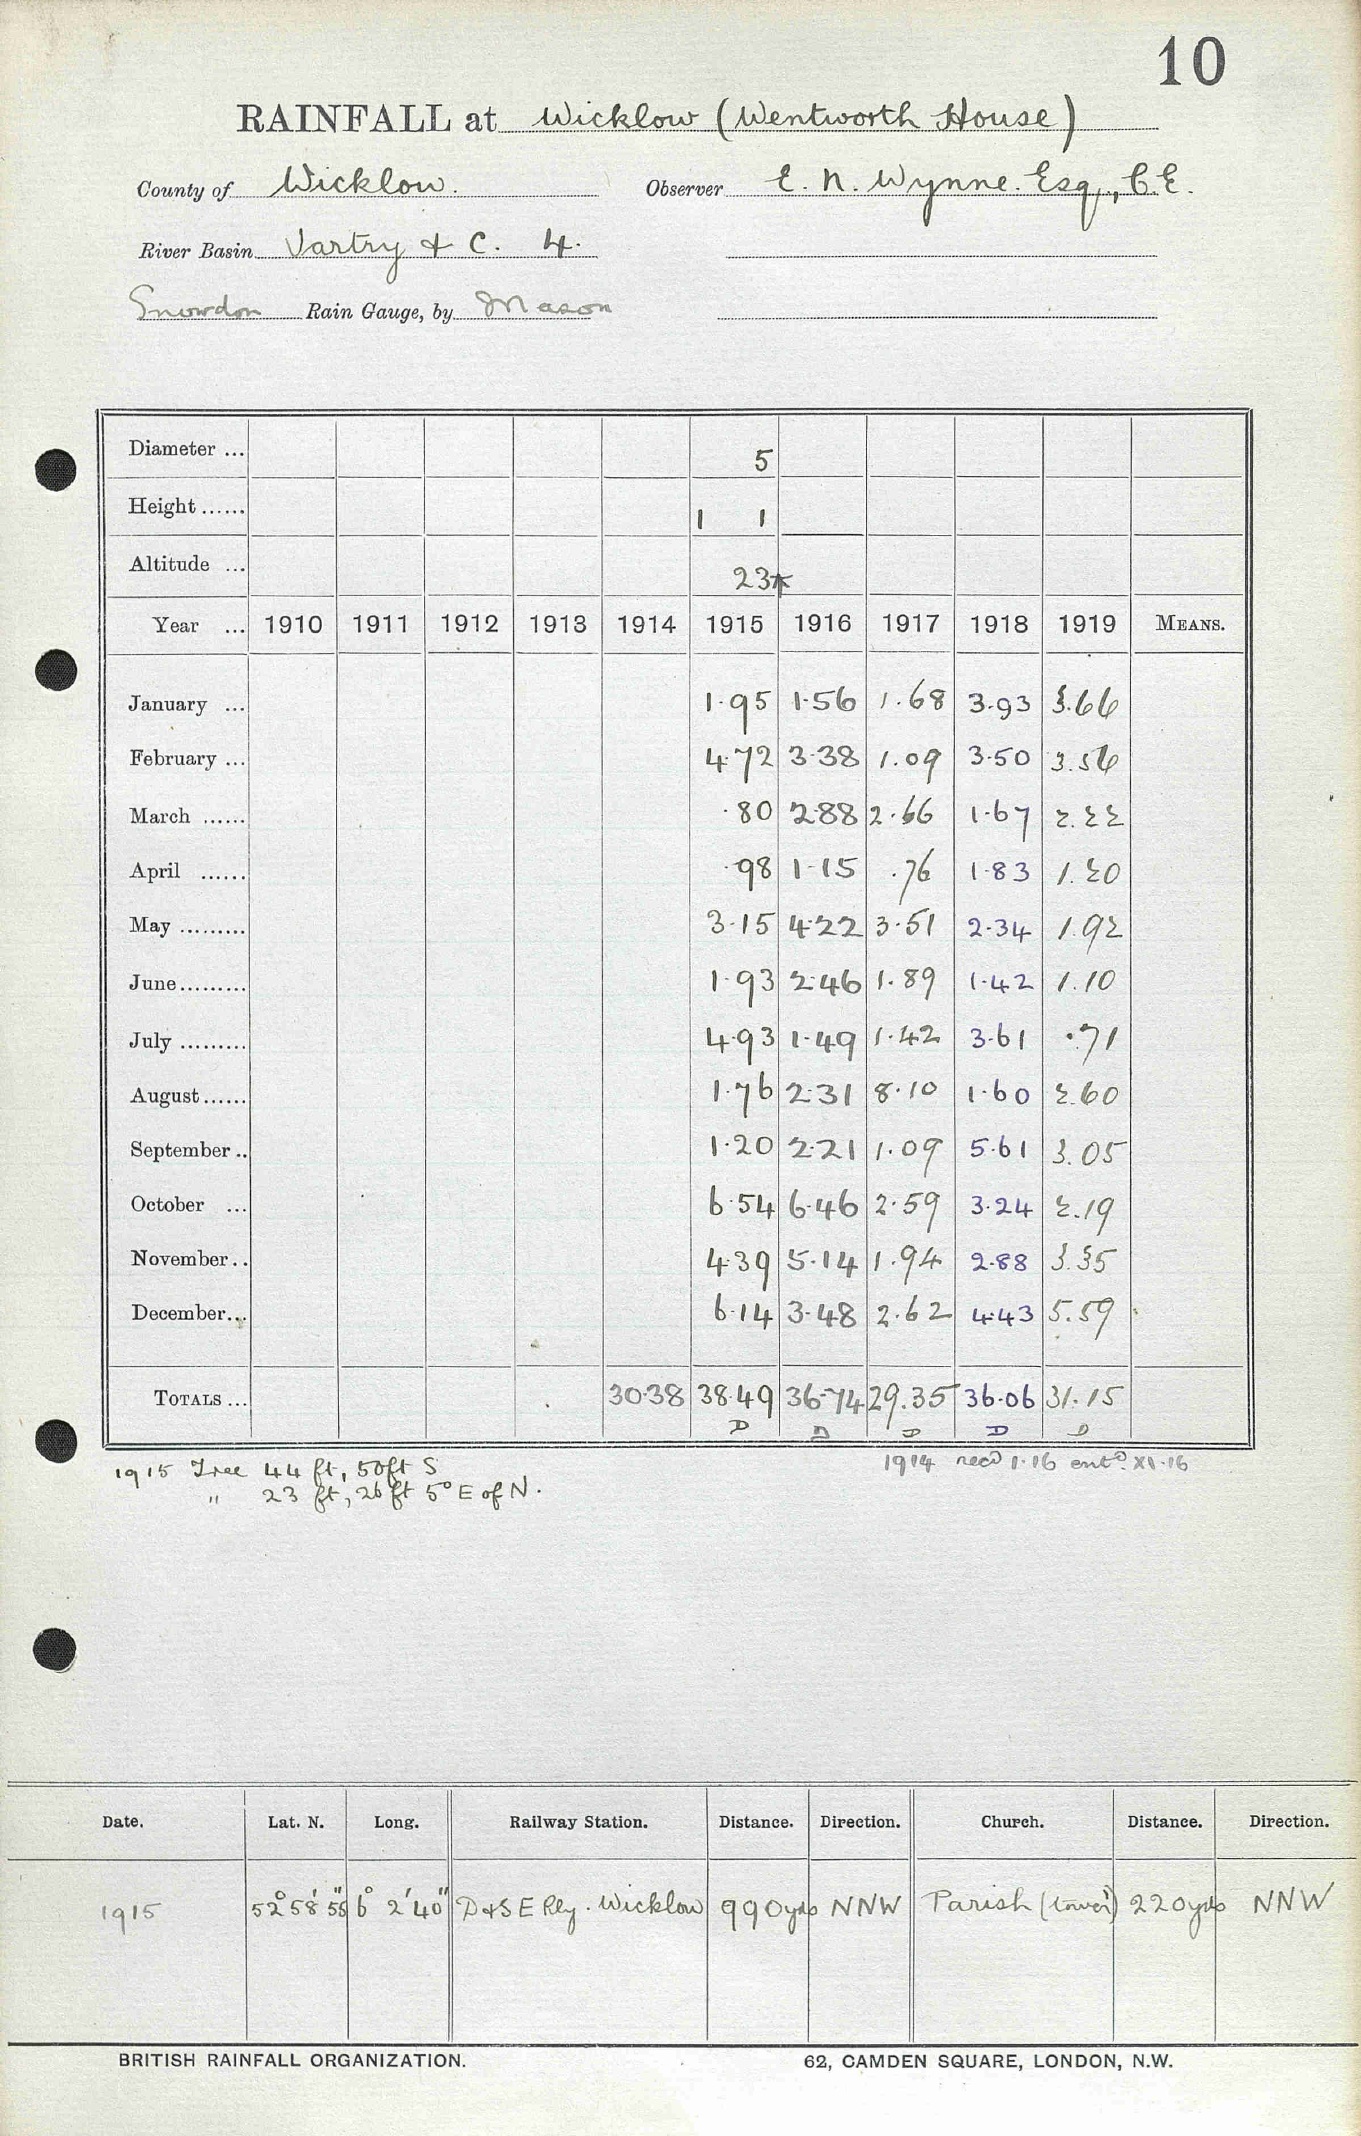 10
RAINFALL at Wicklow (Wentworth House)
County of Wicklow. Observer E. N. Wynne. Esq, C.E.
River Basin Vartry & C. 4.
Snowdon Rain Gauge, by Mason
Diameter ... 5
Height ...... 1 1
Altitude ... 23*
Year ... 1910 1911 1912 1913 1914 1915 1916 1917 1918 1919 MEANS.
January ... 1.95 1.56 1.68 3.93 3.66
February ... 4.72 3.38 1.09 3.50 3.56
March ...... .80 2.88 2.66 1.67 2.22
April ...... .98 1.15 .76 1.83 1.20
May ......... 3.15 4.22 3.51 2.34 1.92
June ......... 1.93 2.46 1.89 1.42 1.10
July ......... 4.93 1.49 1.42 3.61 .71
August ...... 1.76 2.31 8.10 1.60 2.60
September .. 1.20 2.21 1.09 5.61 3.05
October ... 6.54 6.46 2.59 3.24 2.19
November .. 4.39 5.14 1.94 2.88 3.35
December ... 6.14 3.48 2.62 4.43 5.59
TOTALS ... 30.38 38.49 36.74 29.35 36.06 31.15
D D D D D
1914 recd 1.16 entd. XI.16
1915 Tree 44 ft, 50ft S
" 23 ft, 26 ft 5° E of N.
Date. Lat. N. Long. Railway Station. Distance. Direction. Church. Distance. Direction.
1915 52° 58' 55" 6° 2' 40" D & S E Rly. Wicklow 990 yds NNW Parish (tower) 220 yds NNW
BRITISH RAINFALL ORGANIZATION. 62, CAMDEN SQUARE, LONDON, N.W.